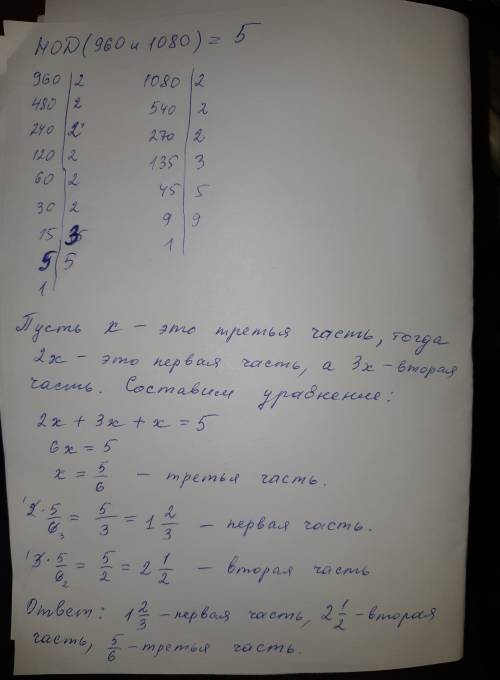 НОД (960 и 1080) = 5
960 | 2 1080 | 2
480 | 2 540 | 2
240 | 2 270 | 2
120 | 2 135 | 3
60 | 2 45 | 5
30 | 2 9 | 9
15 | 3 1
5 | 5
1
Пусть x – это третья часть, тогда
2x – это первая часть, а 3x – вторая
часть. Составим уравнение:
2x + 3x + x = 5
6x = 5
x = 5/6 – третья часть.
¹2·5/6₃ = 5/3 = 1 2/3 – первая часть.
¹3·5/6₂ = 5/2 = 2 1/2 – вторая часть
Ответ: 1 2/3 – первая часть, 2 1/2 – вторая
часть, 5/6 – третья часть.